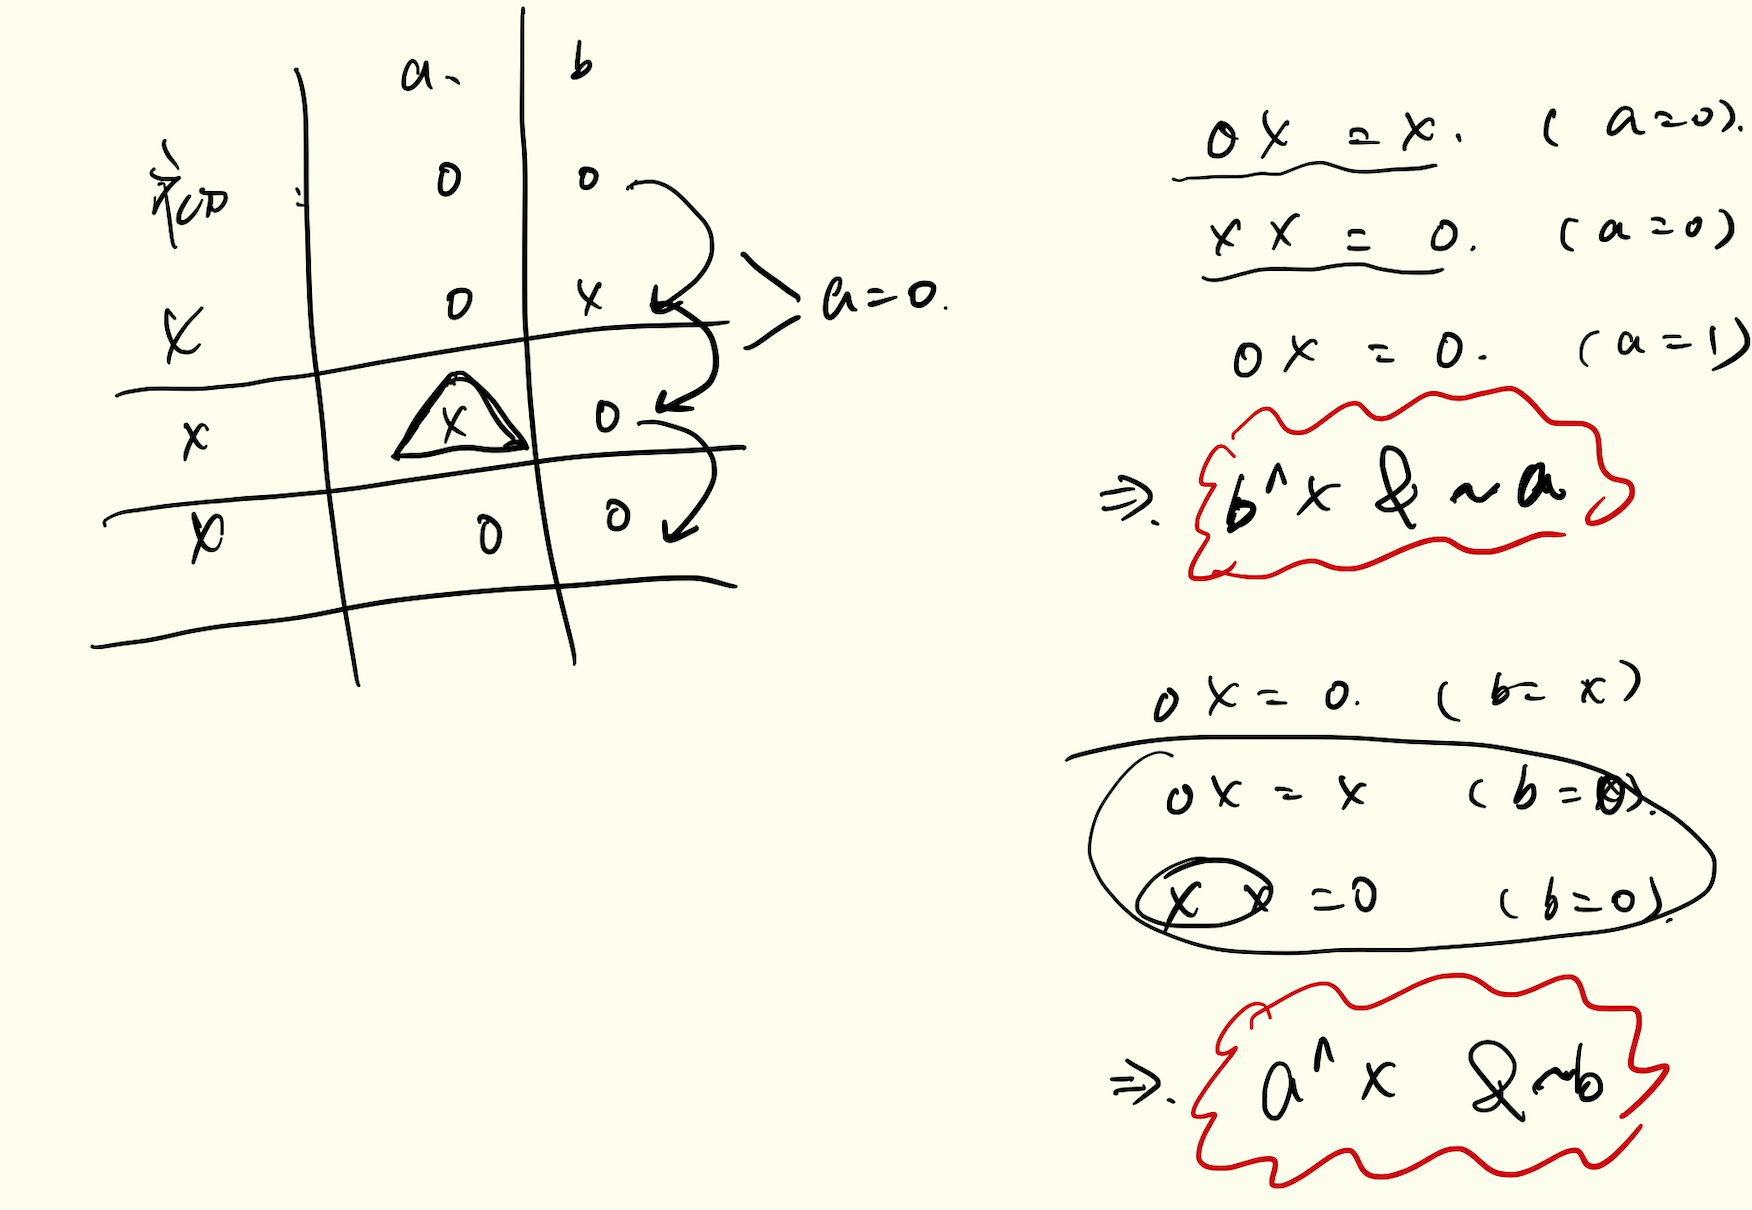 a b
初 0 0
x 0 x
a=0.
x x 0
x 0 0
0 x = x. (a=0).
x x = 0. (a=0)
0 x = 0. (a=1)
⇒. b^x & ~a
0 x = 0. (b= x)
0 x = x (b=0).
x x =0 (b=0).
⇒. a^x & ~b